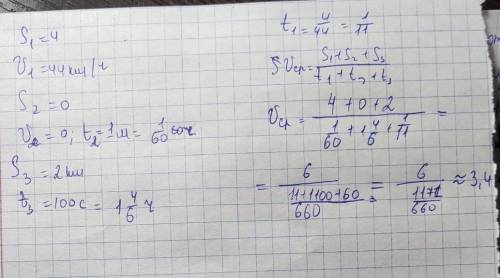 S₁=4
V₁=44км/ч
S₂=0
V₂=0; t₂=1м=1/60 ч
S₃=2км
t₃=100с=1 4/6 ч
t₁=4/44=1/11
Vср=S₁+S₂+S₃/t₁+t₂+t₃
Vср=4+0+2/(1/60+1 4/6+1/11)=
=6/((11+1100+60)/660)=6/(1171/660)≈3,4